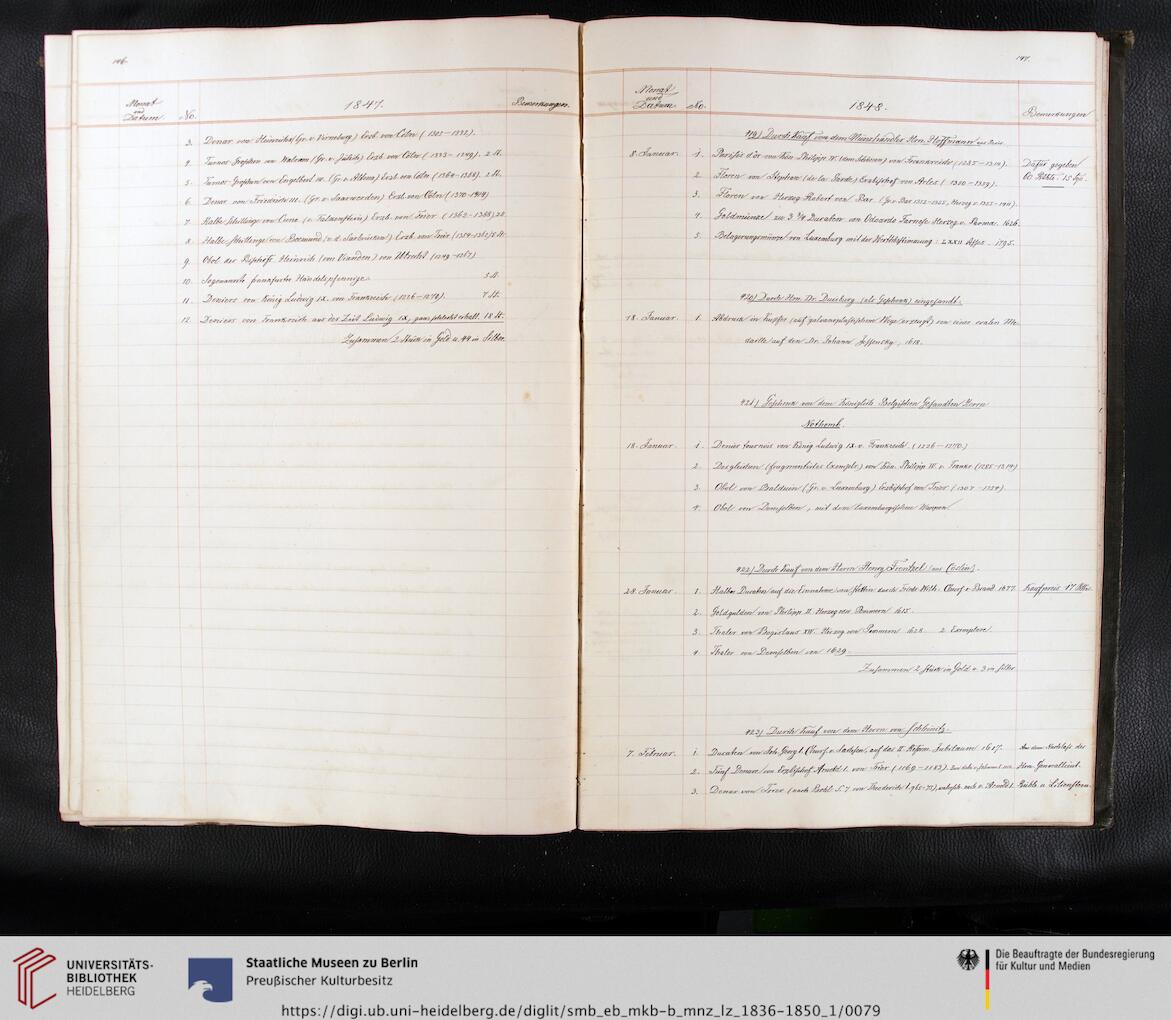 146.
Monat und Datum
No.
1847.
Bemerkungen.
3. Denar von Heinrich (Gr. v. Virneburg) Erzb. von Cöln (1305–1332).
4. Turnos-Groschen von Walram (Gr. v. Jülich) Erzb. von Cöln (1333–1349). 2 St.
5. Turnos-Groschen von Engelbert III. (Gr. v. Altena) Erzb. von Cöln (1364–1368). 2 St.
6. Denar von Friedrich III. (Gr. v. Saarwerden) Erzb. von Cöln (1370–1414)
7. Halbe Schillinge von Cuno (v. Falkenstein) Erzb. von Trier (1362–1388)
8. Halbe Schillinge von Boemund (v. d. Saarbrücken) Erzb. von Trier
9. Obol des Bischofs Heinrich (von Vianden) von Utrecht (1249–1267)
10. Sogenannte frankfurter Händelspfennige. 5 St.
11. Deniers von König Ludwig IX. von Frankreich (1226–1270). 7 St.
12. Deniers von Frankreich aus der Zeit Ludwig IX, ganz schlecht erhalt. 18 St.
Zusammen 2 Stück in Gold u. 44 in Silber.
147.
Monat und Datum
No.
1848.
Bemerkungen
419) Durch Kauf von dem Münzhändler Hrn. Hoffmann aus Paris.
8. Januar. 1. Parisis d'or von Kön. Philipp IV. (dem Schönen) von Frankreich (1285–1314). Dafür gezahlt
2. Floren von Stephan (de la Garde) Erzbischof von Arles (1350–1359). 60 Rthlr. 15 Sgl.
3. Floren von Herzog Robert von Bar. (Gr. v. Bar 1352–1355, Herzog v. 1355–1411).
4. Goldmünze zu 3 ¾ Ducaten von Odoardo Farnese Herzog v. Parma. 1626.
5. Belagerungsmünze von Luxemburg mit der Werthbestimmung: LXXII Asses. 1795.
420) Durch Hrn. Dr. Duisburg (als Geschenk) eingesandt.
18. Januar. 1. Abdruck in Kupfer (auf galvanoplastischem Wege erzeugt) von einer ovalen Me-
daille auf den Dr. Johann Jessensky, 1618.
421) Geschenk von dem Königlich Belgischen Gesandten Herrn
Nothomb.
18. Januar. 1. Denier tournois von König Ludwig IX. v. Frankreich (1226–1270.)
2. Desgleichen (fragmentirtes Exemplr.) von Kön. Philipp IV. v. Frankr. (1285–1314)
3. Obol von Balduin (Gr. v. Luxemburg) Erzbischof von Trier (1307–1354).
4. Obol von Demselben, mit dem luxemburgischen Wappen.
422) Durch Kauf von dem Herrn Henry Frentzel (aus Cöslin).
28. Januar. 1. Halber Ducaten auf die Einnahme von Stettin durch Friedr. Wilh. Churf. v. Brand. 1677. Kaufpreis 17 Rthlr.
2. Goldgulden von Philipp II. Herzog von Pommern 1615.
3. Thaler von Bogislaus XIV. Herzog von Pommern 1628. 2 Exemplare.
4. Thaler von Demselben von 1629.
Zusammen 2 Stück in Gold u. 3 in Silber
423) Durch Kauf von dem Herrn von Schleinitz.
7. Februar. 1. Ducaten von Joh. Georg I. Churf. v. Sachsen, auf das II. Reform. Jubiläum 1617. Aus dem Nachlass des
2. Fünf Denare von Erzbischof Arnold I. von Trier (1169–1183). Hrn. Generallieut.
3. Denar von Trier (nach Bohl S. 7 von Theoderich I. 965–77), v. Arnold I. Rühle v. Lilienstern.
UNIVERSITÄTS-
BIBLIOTHEK
HEIDELBERG
Staatliche Museen zu Berlin
Preußischer Kulturbesitz
Die Beauftragte der Bundesregierung
für Kultur und Medien
https://digi.ub.uni-heidelberg.de/diglit/smb_eb_mkb-b_mnz_lz_1836-1850_1/0079